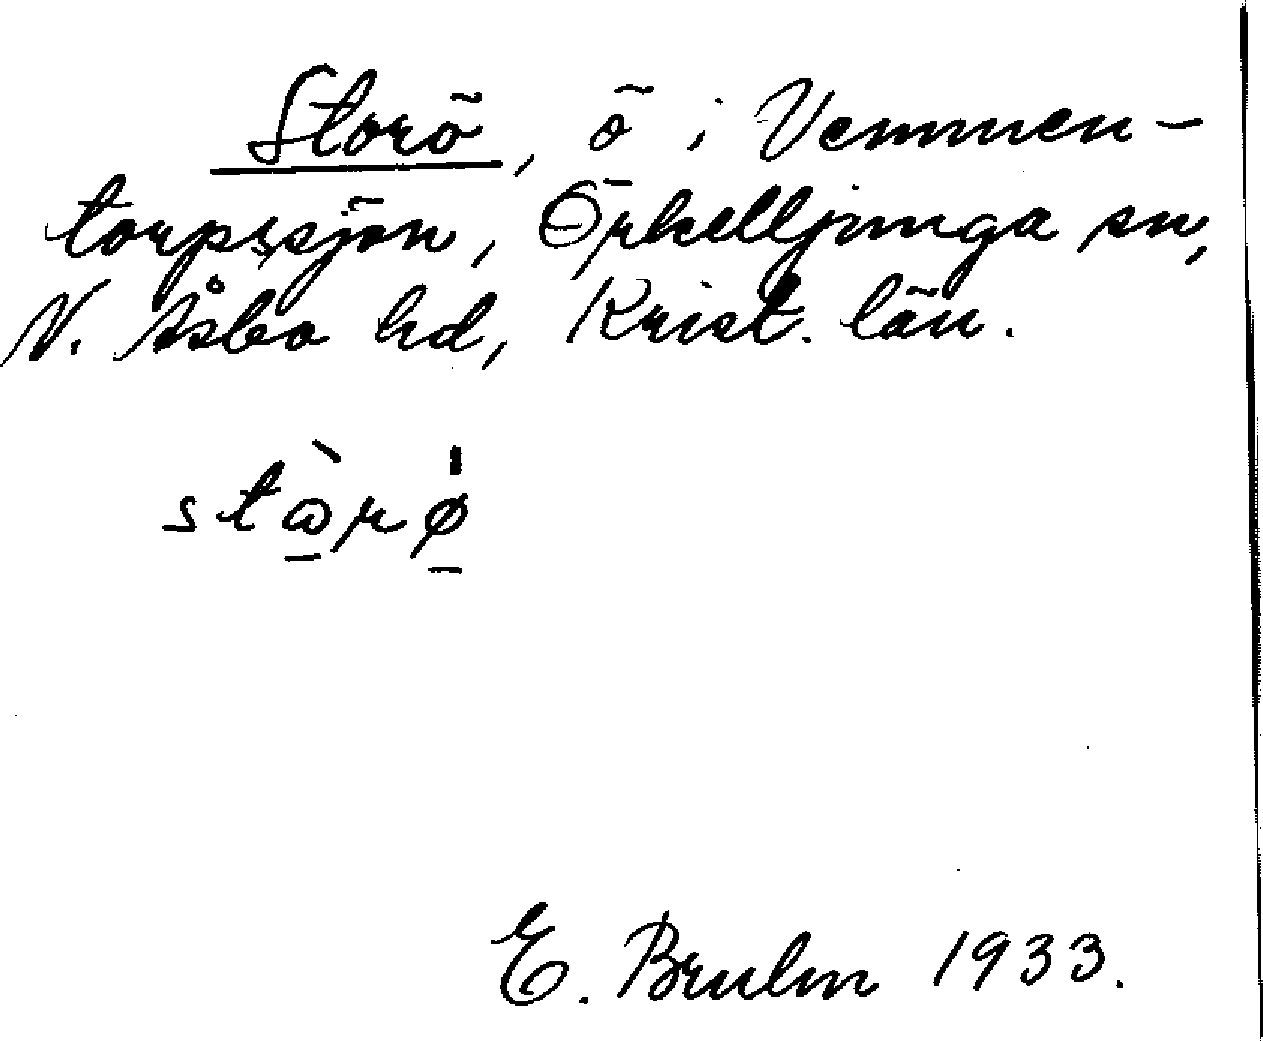 Storö, ö i Vemmen-
torpssjön, Örkelljunga sn,
N. Åsbo hd, Krist. län.
stὼ̱rø̱̍
E. Bruhn 1933.